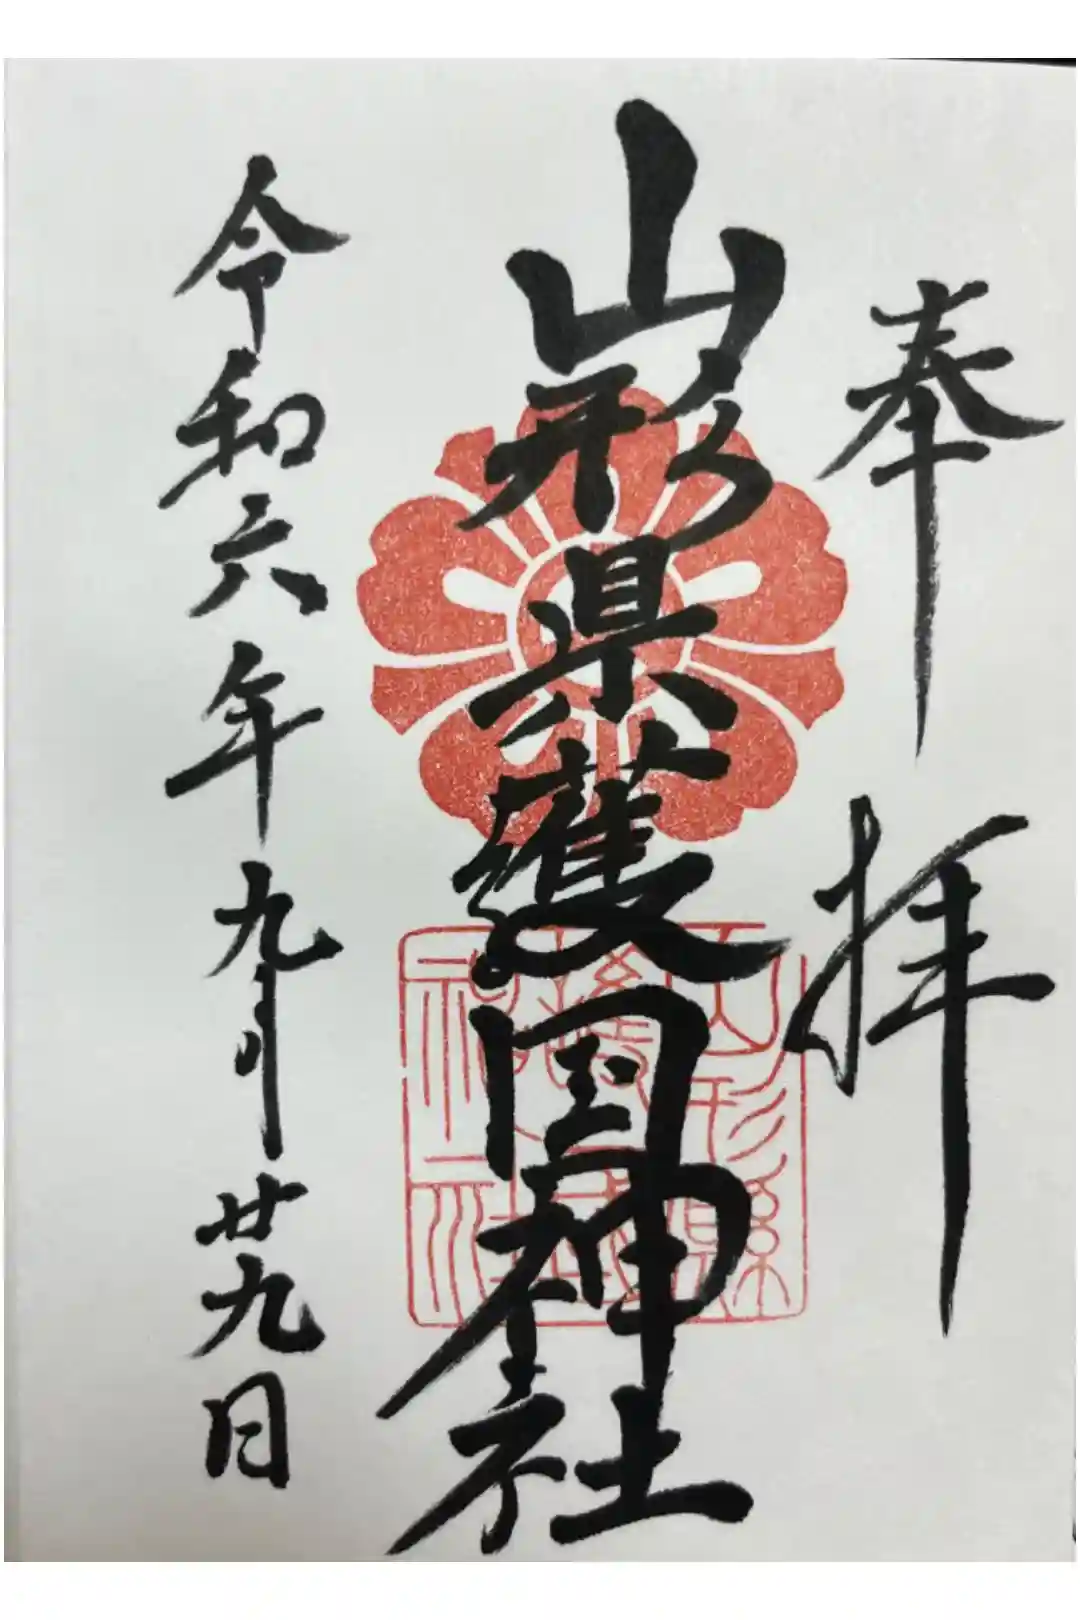 奉拝
山形県護国神社
令和六年九月廿九日
山形縣
護國
神社